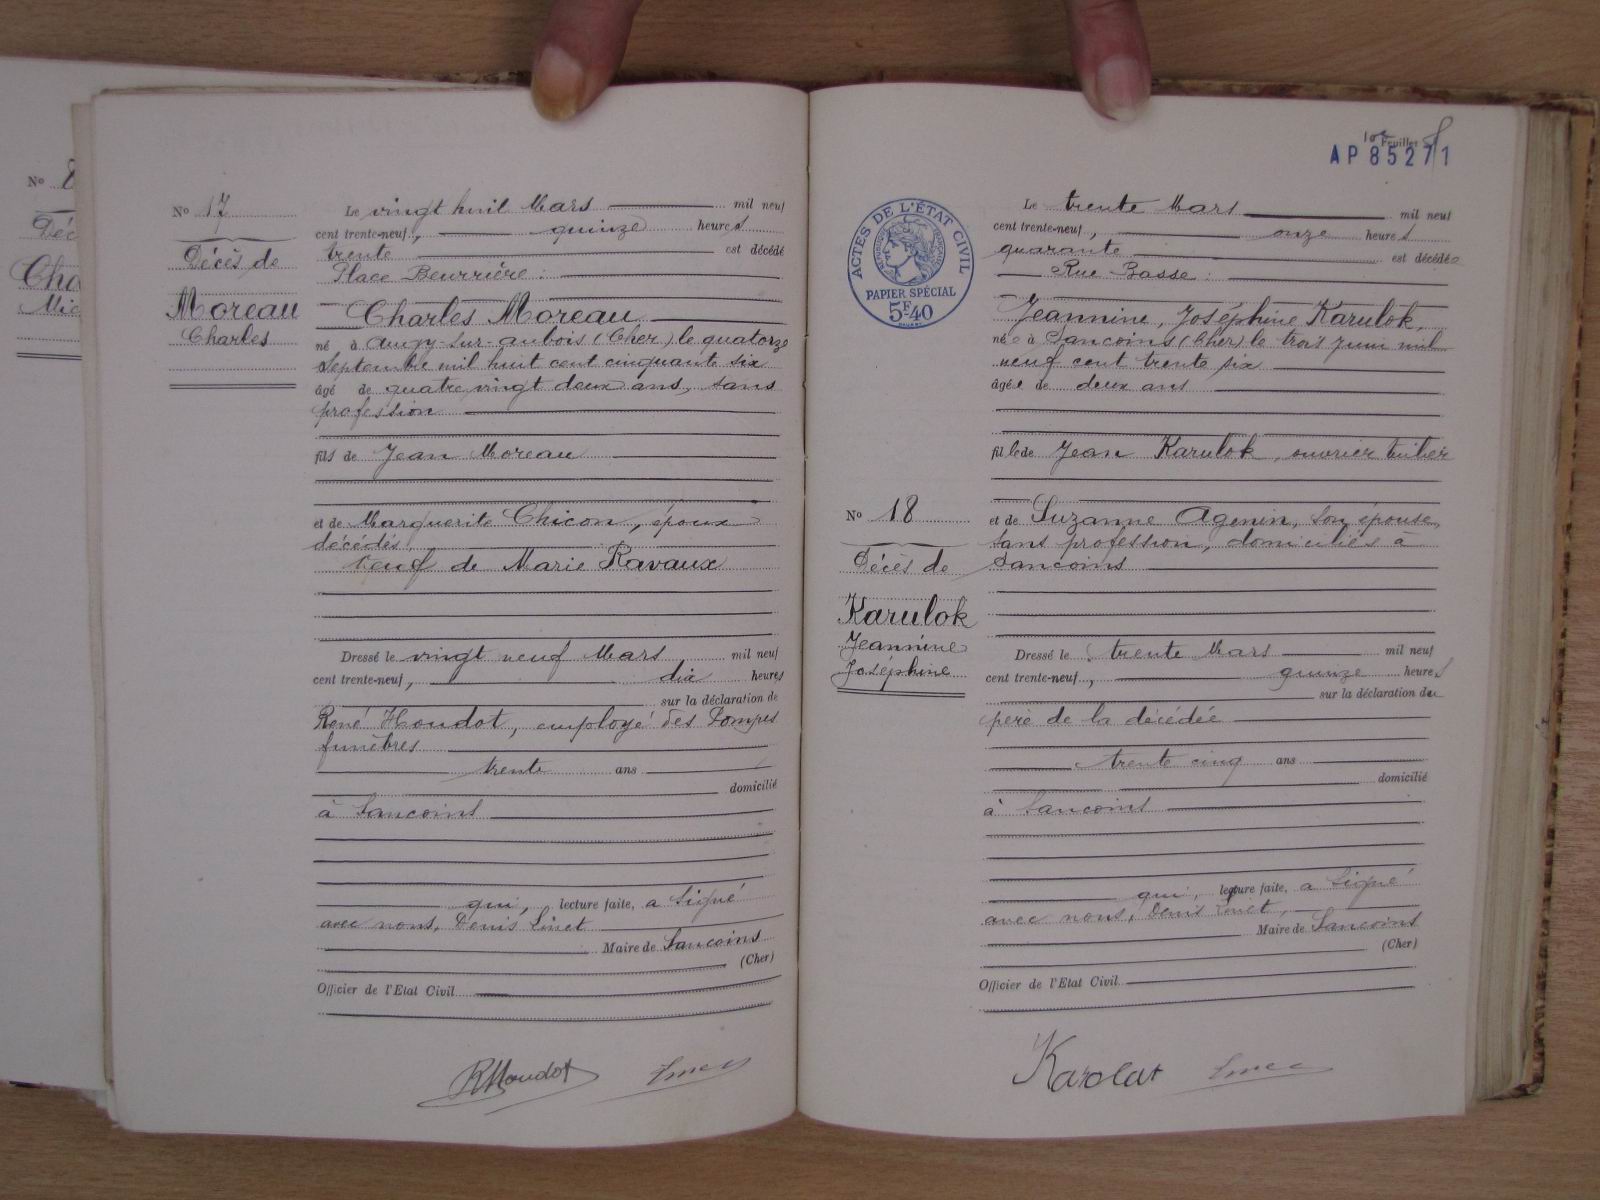 Nº 8
Déc
Cha
Mic
Nº 17
Décès de
Moreau
Charles
Le vingt huit Mars mil neuf
cent trente-neuf, quinze heures
trente est décédé
Place Beurrière :
Charles Moreau
né à Augy-sur-Aubois (Cher) le quatorze
Septembre mil huit cent cinquante six
âgé de quatre vingt deux ans, sans
profession
fils de Jean Moreau
et de Marguerite Chicon, époux
décédés.
Veuf de Marie Ravaux
Dressé le vingt neuf Mars mil neuf
cent trente-neuf, dix heures
sur la déclaration de
René Houdot, employé des Pompes
funèbres
trente ans
domicilié
à Sancoins
qui, lecture faite, a signé
avec nous, Denis Linet
Maire de Sancoins
(Cher)
Officier de l'Etat Civil
RHoudot
10e Feuillet
AP 85271
ACTES DE L'ÉTAT CIVIL
PAPIER SPÉCIAL
5F40
Nº 18
Décès de
Karulok
Jeannine
Joséphine
Le trente Mars mil neuf
cent trente-neuf, onze heures
quarante est décédée
Rue Basse :
Jeannine, Joséphine Karulok,
née à Sancoins (Cher) le trois Juin mil
neuf cent trente six
âgée de deux ans
fille de Jean Karulok, ouvrier tuilier
et de Suzanne Agenin, son épouse,
sans profession, domiciliés à
Sancoins
Dressé le trente Mars mil neuf
cent trente-neuf, quinze heures
sur la déclaration du
père de la décédée
trente cinq ans
domicilié
à Sancoins
qui, lecture faite, a signé
avec nous, Denis Linet,
Maire de Sancoins
(Cher)
Officier de l'Etat Civil
Karolat